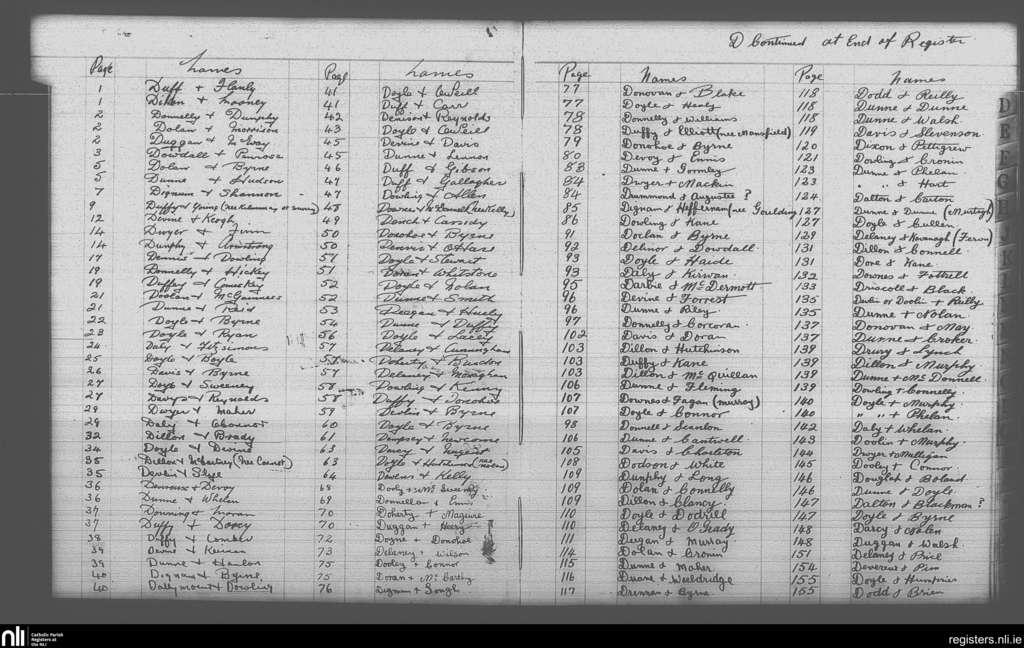 D Continued at End of Register
Page Names
1 Duff & Hanly
1 Dillon & Mooney
2 Donnelly & Dunphy
2 Dolan & Morrison
2 Duggan &
3 Dowdall & Penrose
5 Dolan & Byrne
5 Dunne & Hudson
7 Dignum & Shannon
9 Duffy & Young
12 Denne & Keogh
14 Dwyer & Finn
14 Dunphy & Armstrong
17 Dennis & Dowling
19 Donnelly & Hickey
19 Duffey & Comiskey
21 Doolan & McGuinness
21 Dunne & Reid
22 Doyle & Byrne
23 Doyle & Ryan
24 Daly & Fitzsimons
25 Doyle & Boyle
26 Davis & Byrne
27 Doyle & Sweeney
27 Davys & Reynolds
29 Dwyer & Maher
29 Daly & OConnor
32 Dillon & Brady
34 Doyle & Devine
35 Dillon &
35 Devlin & Skye
36 Devereux & Devoy
36 Dunne & Whelan
37 Downing & Moran
37 Duffy & Darcy
38 Duffy &
39 Devine & Keenan
39 Dunne & Hanlon
40 Dignam & Byrne
40 Dallymount & Dowling
Page Names
41 Doyle & ONeill
41 Duff & Carr
42 Denison & Reynolds
43 Doyle & ONeill
45 Devine & Davis
45 Dunne & Lennon
46 Duff & Gibson
47 Duff & Gallagher
47 Dowling & Allen
48 Downes & McDonnell
49 Dorch & Cassidy
50 Donohoe & Byrne
50 Dennis & OHare
57 Doyle & Stewart
51 & Whitstone
52 Doyle & Dolan
52 Dunne & Smith
53 Deegan & Healy
54 Dunne & Duffy
56 Doyle & Lacey
57 Delaney & Cunningham
57 Doherty &
57 Delaney & Monaghan
58 Dowling & Kenny
58 Duffy & Donohoe
59 Devlin & Byrne
60 Doyle & Byrne
61 Dempsey & Newcome
63 Darcy & Nugent
63 Doyle & Hutchinson
64 Dowens & Kelly
68 Dooly & McSweeney
69 Donnellan & Ennis
70 Doherty & Maguire
70 Duggan & Henry
72 Doyne & Donohoe
73 Delaney & Wilson
75 Dooley & Connor
75 Doran & McCarthy
76 Dignam & Gough
Page Names
77 Donovan & Blake
77 Doyle & Healy
78 Donnelly & Williams
78 Duffy & Elliott (nee Mansfield)
79 Donohoe & Byrne
80 Devoy & Ennis
83 Dunne & Gormley
84 Dwyer & Mackin
84 Drummond & Augustus ?
85 Dignam & Heffernan (nee Goulding
86 Dowling & Kane
91 Doolan & Byrne
92 Delinor & Dowdall
93 Doyle & Haide
93 Daly & Kirwan
95 Darbue & McDermott
96 Devine & Forrest
96 Dunne & Riley
97 Donnelly & Corcoran
102 Davis & Doran
103 Dillon & Hutchinson
103 Duffy & Kane
103 Dillon & McQuillan
106 Dunne & Fleming
107 Downes & Fagan (Murray)
107 Doyle & Connor
98 Donnell & Scanlon
106 Dunne & Cantwell
105 Davis & Charlston
108 Dodson & White
109 Dunphy & Long
109 Dolan & Connelly
109 Dillon & Clancy
110 Doyle & Dodrill
110 Delaney & O'Grady
111 Deegan & Murray
114 Dolan & Cronin
115 Dunne & Maher
116 Duane & Weeldridge
117 Drennan & Byrne
Page Names
118 Dodd & Reilly
118 Dunne & Dunne
118 Dunne & Walsh
119 Davis & Stevenson
120 Dixon & Pettigrew
121 Dowling & Cronin
123 Dunne & Phelan
123 " & Hart
124 Dalton & Carton
127 Dunne & Dunne (Murtagh)
127 Doyle & Cullen
129 Delaney & Kavanagh
131 Dillon & Connell
131 Dore & Kane
132 Downes & Fottrell
133 Driscoll & Black
135 Devlin or Doolin & Reilly
135 Dunne & Nolan
137 Donovan & May
137 Dunne & Croker
138 Drury & Lynch
139 Dillon & Murphy
138 Dunne & McDonnell
139 Dowling & Connelly
140 Doyle & Murphy
140 " " & Phelan
142 Daly & Whelan
143 Doolin & Murphy
144 Dwyer & Mulligan
145 Dooley & Connor
146 Douglas & Boland
146 Dunne & Doyle
147 Dalton & Blackman ?
147 Doyle & Byrne
148 Darcy & Whelan
148 Duggan & Walsh
151 Delaney & Price
154 Devereux & Pim
155 Doyle & Humphries
155 Dodd & Brien
D
E
F
G
nli Catholic Parish Registers at the NLI
registers.nli.ie